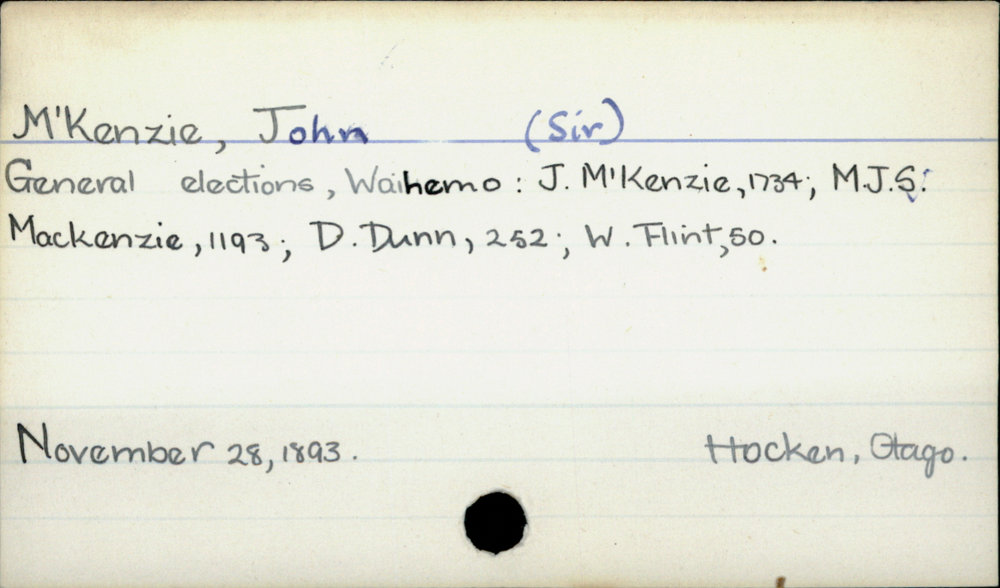 M'Kenzie, John (Sir)
General elections, Waihemo: J. M'Kenzie, 1734; M.J.S.
Mackenzie, 1193; D. Dunn, 252; W. Flint, 50.
November 28, 1893. Hocken, Otago.